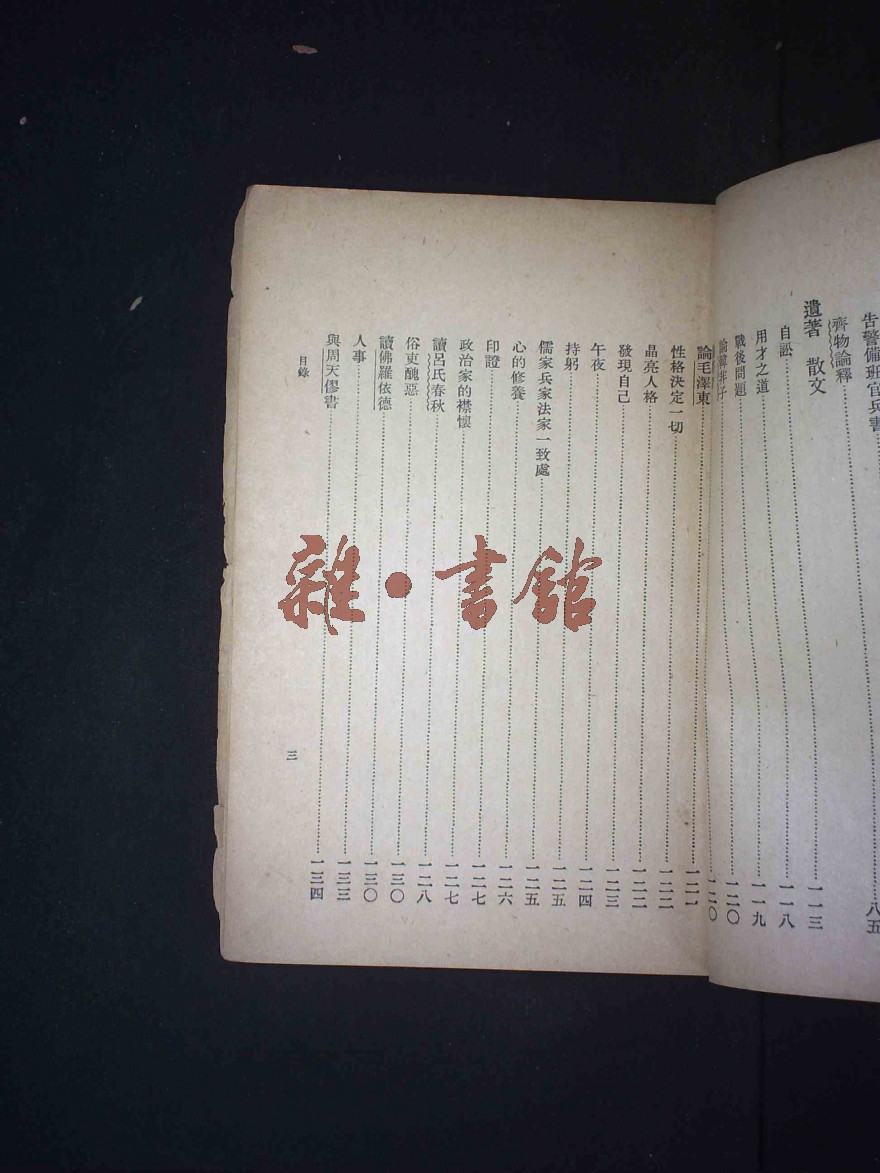 告警備班官兵書
齊物論釋……八五
遺著 散文……一一三
自訟……一一八
用才之道……一一九
戰後問題……一二〇
論韓非子……一二〇
論毛澤東……一二一
性格決定一切……一二二
晶亮人格……一二二
發現自己……一二三
午夜……一二四
持躬……一二五
儒家兵家法家一致處……一二五
心的修養……一二六
印證……一二七
政治家的襟懷……一二七
讀呂氏春秋……一二八
俗更醜惡……一三〇
讀佛羅依德……一三〇
人事……一三三
與周天僇書……一三四
目錄
三
雜·書館